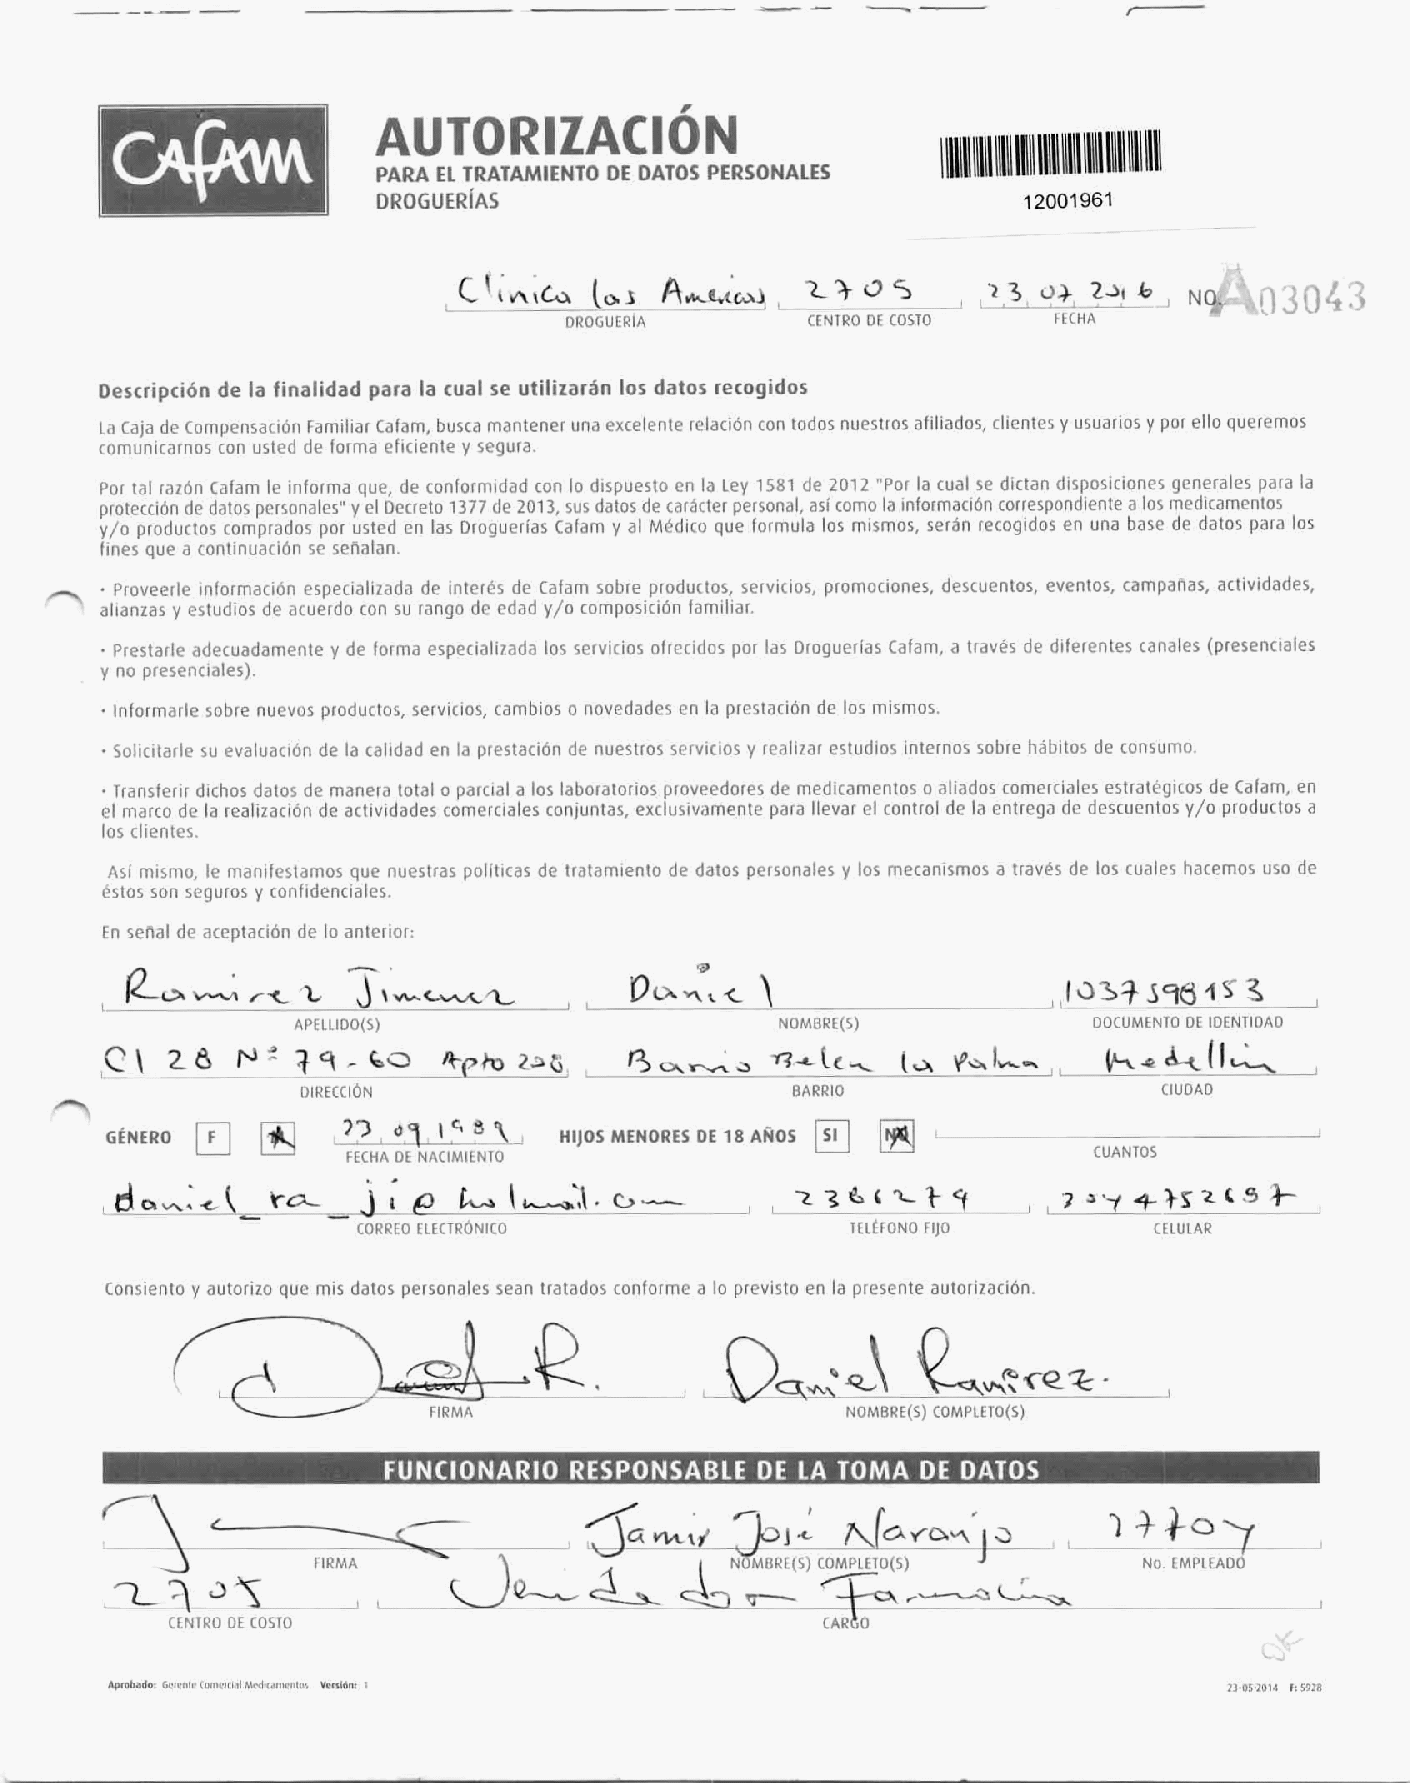 CAFAM
AUTORIZACIÓN
PARA EL TRATAMIENTO DE DATOS PERSONALES
DROGUERÍAS
12001961
Clinica las Americas 2705 23 07 2016 NO. A03043
DROGUERÍA CENTRO DE COSTO FECHA
Descripción de la finalidad para la cual se utilizarán los datos recogidos
La Caja de Compensación Familiar Cafam, busca mantener una excelente relación con todos nuestros afiliados, clientes y usuarios y por ello queremos
comunicarnos con usted de forma eficiente y segura.
Por tal razón Cafam le informa que, de conformidad con lo dispuesto en la Ley 1581 de 2012 "Por la cual se dictan disposiciones generales para la
protección de datos personales" y el Decreto 1377 de 2013, sus datos de carácter personal, así como la información correspondiente a los medicamentos
y/o productos comprados por usted en las Droguerías Cafam y al Médico que formula los mismos, serán recogidos en una base de datos para los
fines que a continuación se señalan.
· Proveerle información especializada de interés de Cafam sobre productos, servicios, promociones, descuentos, eventos, campañas, actividades,
alianzas y estudios de acuerdo con su rango de edad y/o composición familiar.
· Prestarle adecuadamente y de forma especializada los servicios ofrecidos por las Droguerías Cafam, a través de diferentes canales (presenciales
y no presenciales).
· Informarle sobre nuevos productos, servicios, cambios o novedades en la prestación de los mismos.
· Solicitarle su evaluación de la calidad en la prestación de nuestros servicios y realizar estudios internos sobre hábitos de consumo.
· Transferir dichos datos de manera total o parcial a los laboratorios proveedores de medicamentos o aliados comerciales estratégicos de Cafam, en
el marco de la realización de actividades comerciales conjuntas, exclusivamente para llevar el control de la entrega de descuentos y/o productos a
los clientes.
Así mismo, le manifestamos que nuestras políticas de tratamiento de datos personales y los mecanismos a través de los cuales hacemos uso de
éstos son seguros y confidenciales.
En señal de aceptación de lo anterior:
Ramirez Jimenez Daniel 1037598153
APELLIDO(S) NOMBRE(S) DOCUMENTO DE IDENTIDAD
Cl 28 Nº 79-60 Apto 208 Barrio Belen la Palma Medellin
DIRECCIÓN BARRIO CIUDAD
GÉNERO F 23 09 1989 HIJOS MENORES DE 18 AÑOS SI NO
FECHA DE NACIMIENTO CUANTOS
daniel_ra_ji@hotmail.com 2386279 3044752697
CORREO ELECTRÓNICO TELÉFONO FIJO CELULAR
Consiento y autorizo que mis datos personales sean tratados conforme a lo previsto en la presente autorización.
Daniel Ramirez.
FIRMA NOMBRE(S) COMPLETO(S)
FUNCIONARIO RESPONSABLE DE LA TOMA DE DATOS
Jamir José Naranjo 27704
FIRMA NOMBRE(S) COMPLETO(S) No. EMPLEADO
2705 Vendedor Farmacia
CENTRO DE COSTO CARGO
OK
Aprobado: Gerente Comercial Medicamentos Versión: 1 23-05-2014 F: 5928